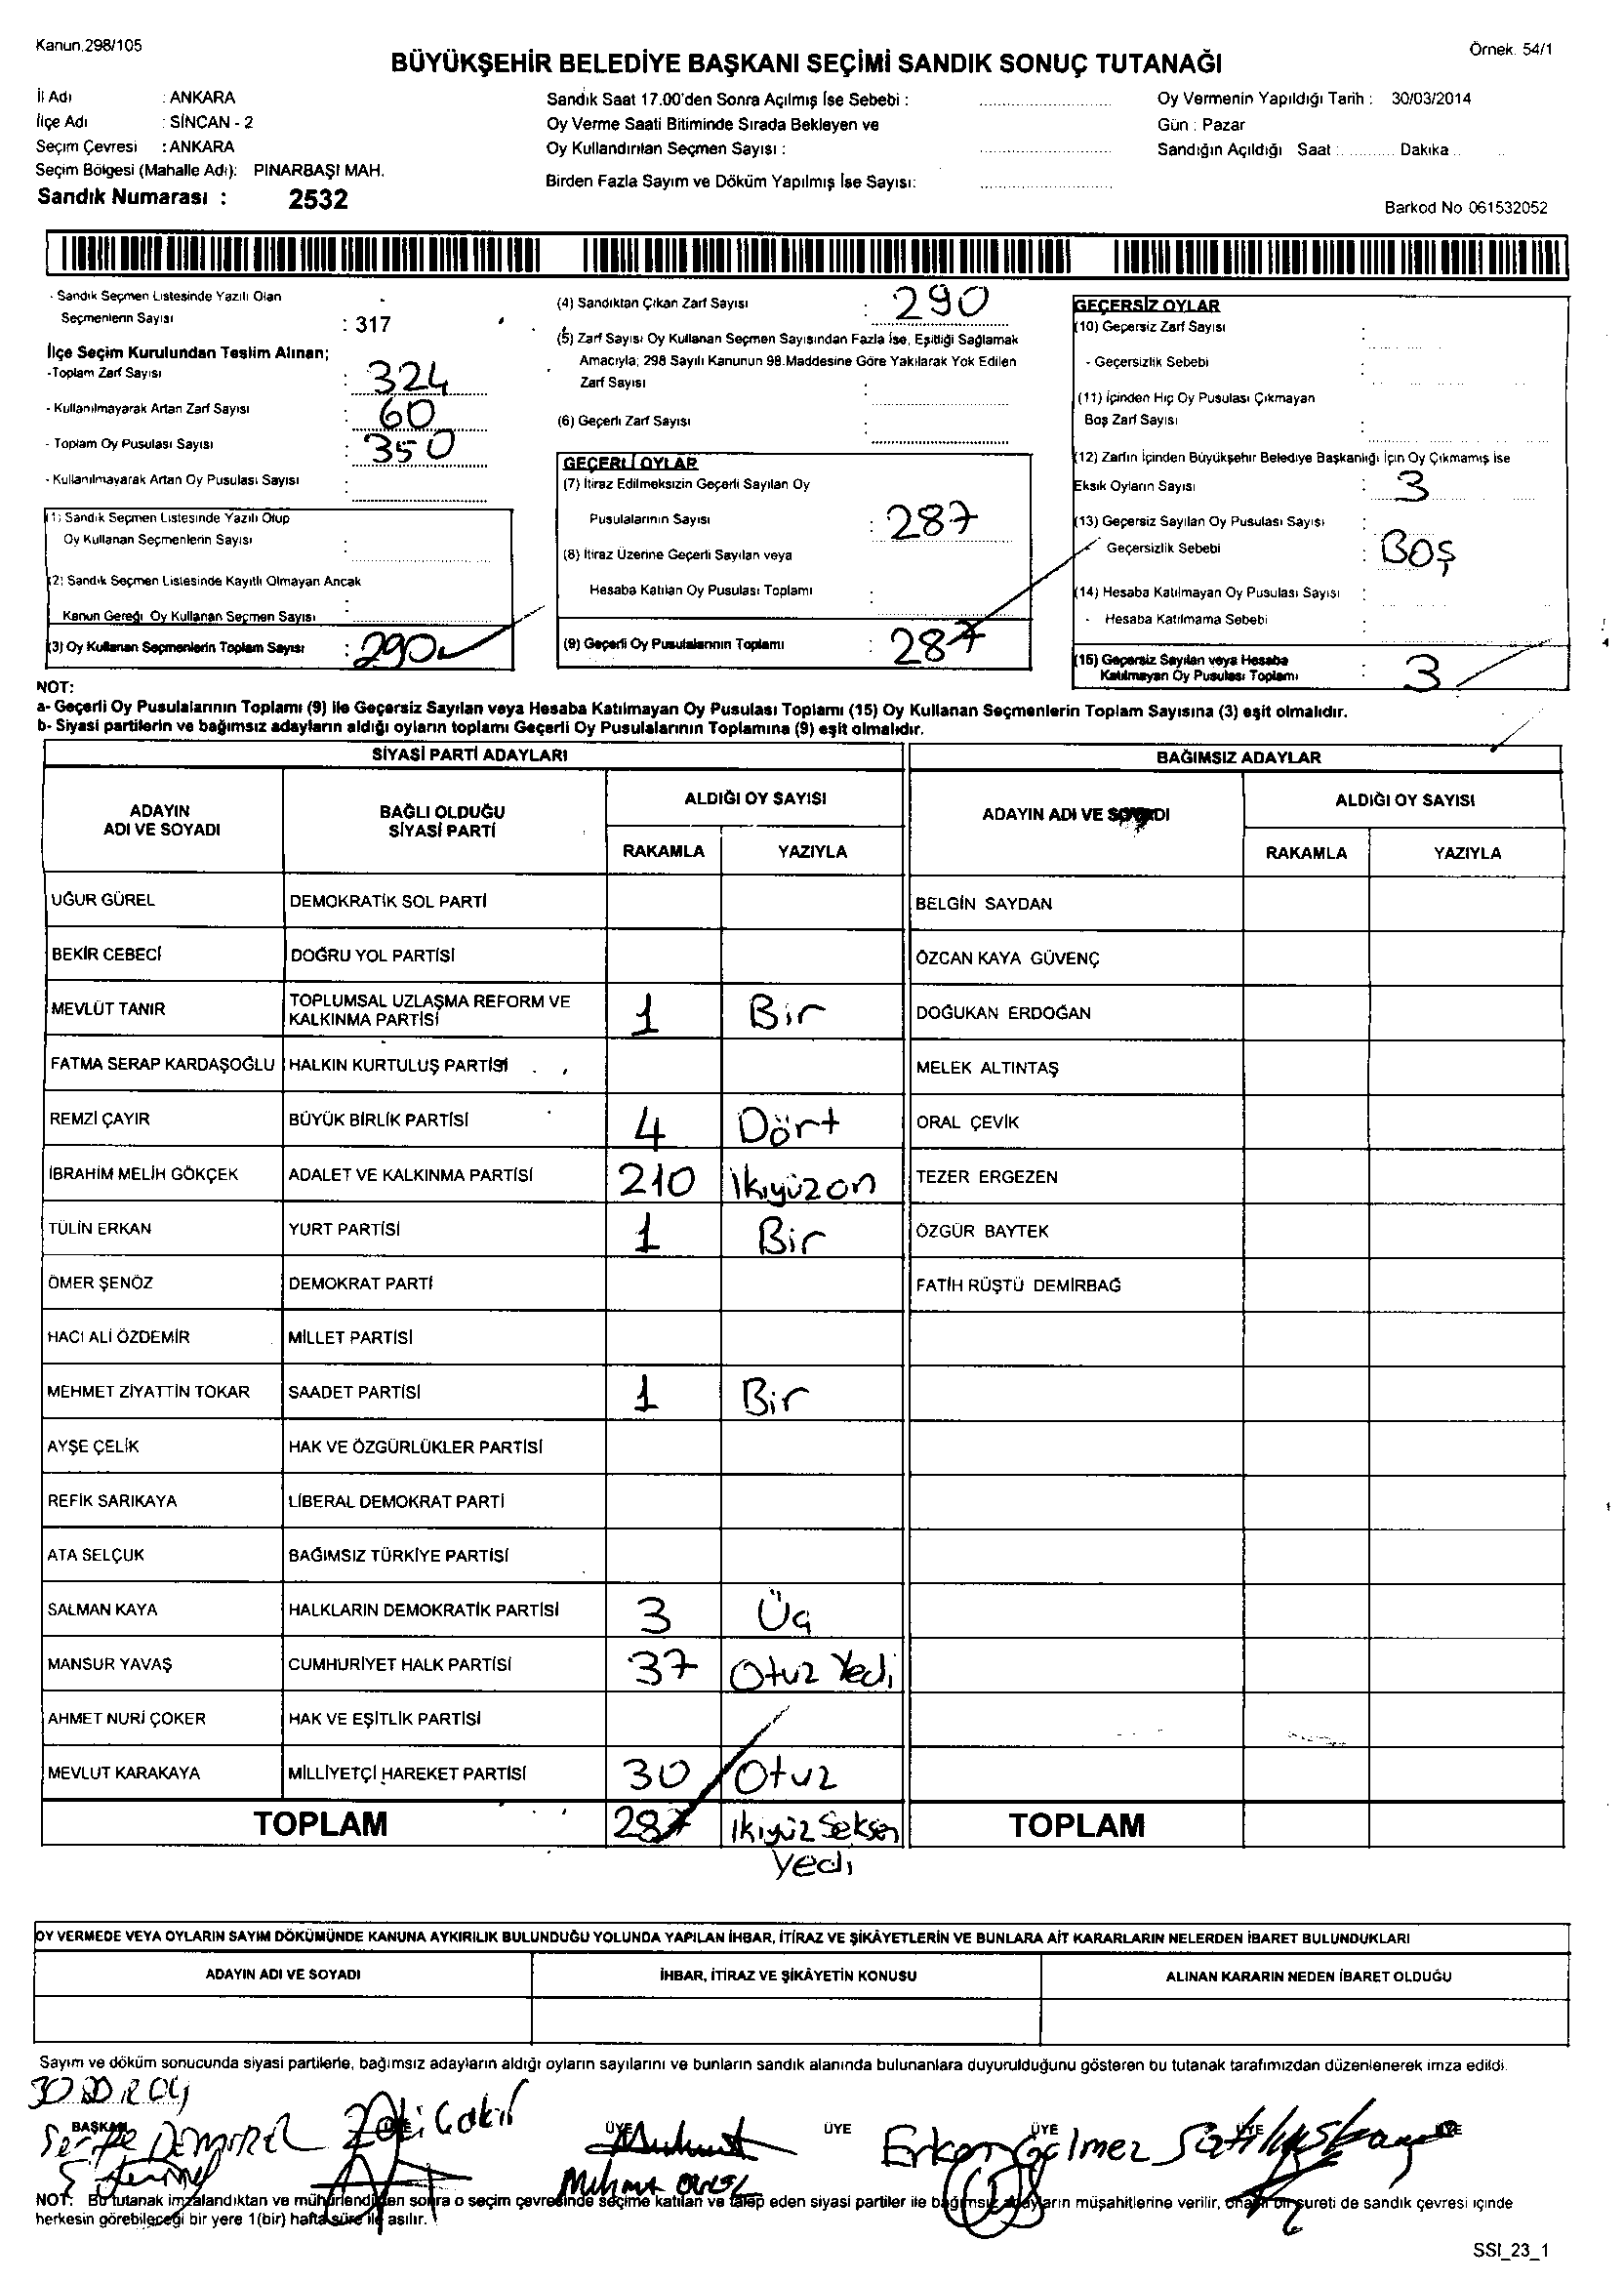 Kanun.298/105
Örnek. 54/1
BÜYÜKŞEHİR BELEDİYE BAŞKANI SEÇİMİ SANDIK SONUÇ TUTANAĞI
İl Adı : ANKARA
İlçe Adı : SİNCAN - 2
Seçim Çevresi : ANKARA
Seçim Bölgesi (Mahalle Adı): PINARBAŞI MAH.
Sandık Numarası : 2532
Sandık Saat 17.00'den Sonra Açılmış İse Sebebi :
Oy Verme Saati Bitiminde Sırada Bekleyen ve
Oy Kullandırılan Seçmen Sayısı :
Birden Fazla Sayım ve Döküm Yapılmış İse Sayısı:
Oy Vermenin Yapıldığı Tarih : 30/03/2014
Gün : Pazar
Sandığın Açıldığı Saat : Dakika
Barkod No 061532052
- Sandık Seçmen Listesinde Yazılı Olan
Seçmenlerin Sayısı : 317
İlçe Seçim Kurulundan Teslim Alınan;
-Toplam Zarf Sayısı : 324
- Kullanılmayarak Artan Zarf Sayısı : 60
- Toplam Oy Pusulası Sayısı : 350
- Kullanılmayarak Artan Oy Pusulası Sayısı :
(1) Sandık Seçmen Listesinde Yazılı Olup
Oy Kullanan Seçmenlerin Sayısı :
(2) Sandık Seçmen Listesinde Kayıtlı Olmayan Ancak
Kanun Gereği Oy Kullanan Seçmen Sayısı :
(3) Oy Kullanan Seçmenlerin Toplam Sayısı : 290
(4) Sandıktan Çıkan Zarf Sayısı : 290
(5) Zarf Sayısı Oy Kullanan Seçmen Sayısından Fazla İse, Eşitliği Sağlamak
Amacıyla; 298 Sayılı Kanunun 98.Maddesine Göre Yakılarak Yok Edilen
Zarf Sayısı :
(6) Geçerli Zarf Sayısı :
GEÇERLİ OYLAR
(7) İtiraz Edilmeksizin Geçerli Sayılan Oy
Pusulalarının Sayısı : 287
(8) İtiraz Üzerine Geçerli Sayılan veya
Hesaba Katılan Oy Pusulası Toplamı :
(9) Geçerli Oy Pusulalarının Toplamı : 287
GEÇERSİZ OYLAR
(10) Geçersiz Zarf Sayısı :
- Geçersizlik Sebebi :
(11) İçinden Hiç Oy Pusulası Çıkmayan
Boş Zarf Sayısı :
(12) Zarfın İçinden Büyükşehir Belediye Başkanlığı İçin Oy Çıkmamış İse
Eksik Oyların Sayısı : 3
(13) Geçersiz Sayılan Oy Pusulası Sayısı :
Geçersizlik Sebebi : Boş
(14) Hesaba Katılmayan Oy Pusulası Sayısı :
- Hesaba Katılmama Sebebi :
(15) Geçersiz Sayılan veya Hesaba
Katılmayan Oy Pusulası Toplamı : 3
NOT:
a- Geçerli Oy Pusulalarının Toplamı (9) ile Geçersiz Sayılan veya Hesaba Katılmayan Oy Pusulası Toplamı (15) Oy Kullanan Seçmenlerin Toplam Sayısına (3) eşit olmalıdır.
b- Siyasi partilerin ve bağımsız adayların aldığı oyların toplamı Geçerli Oy Pusulalarının Toplamına (9) eşit olmalıdır.
SİYASİ PARTİ ADAYLARI
BAĞIMSIZ ADAYLAR
ADAYIN ADI VE SOYADI
BAĞLI OLDUĞU SİYASİ PARTİ
ALDIĞI OY SAYISI
RAKAMLA YAZIYLA
ADAYIN ADI VE SOYADI
ALDIĞI OY SAYISI
RAKAMLA YAZIYLA
UĞUR GÜREL DEMOKRATİK SOL PARTİ BELGİN SAYDAN
BEKİR CEBECİ DOĞRU YOL PARTİSİ ÖZCAN KAYA GÜVENÇ
MEVLÜT TANIR TOPLUMSAL UZLAŞMA REFORM VE KALKINMA PARTİSİ 1 Bir DOĞUKAN ERDOĞAN
FATMA SERAP KARDAŞOĞLU HALKIN KURTULUŞ PARTİSİ MELEK ALTINTAŞ
REMZİ ÇAYIR BÜYÜK BİRLİK PARTİSİ 4 Dört ORAL ÇEVİK
İBRAHİM MELİH GÖKÇEK ADALET VE KALKINMA PARTİSİ 210 ikiyüzon TEZER ERGEZEN
TÜLİN ERKAN YURT PARTİSİ 1 Bir ÖZGÜR BAYTEK
ÖMER ŞENÖZ DEMOKRAT PARTİ FATİH RÜŞTÜ DEMİRBAĞ
HACI ALİ ÖZDEMİR MİLLET PARTİSİ
MEHMET ZİYATTİN TOKAR SAADET PARTİSİ 1 Bir
AYŞE ÇELİK HAK VE ÖZGÜRLÜKLER PARTİSİ
REFİK SARIKAYA LİBERAL DEMOKRAT PARTİ
ATA SELÇUK BAĞIMSIZ TÜRKİYE PARTİSİ
SALMAN KAYA HALKLARIN DEMOKRATİK PARTİSİ 3 Üç
MANSUR YAVAŞ CUMHURİYET HALK PARTİSİ 37 Otuz Yedi
AHMET NURİ ÇOKER HAK VE EŞİTLİK PARTİSİ
MEVLUT KARAKAYA MİLLİYETÇİ HAREKET PARTİSİ 30 Otuz
TOPLAM 287 ikiyüz Seksen Yedi TOPLAM
OY VERMEDE VEYA OYLARIN SAYIM DÖKÜMÜNDE KANUNA AYKIRILIK BULUNDUĞU YOLUNDA YAPILAN İHBAR, İTİRAZ VE ŞİKÂYETLERİN VE BUNLARA AİT KARARLARIN NELERDEN İBARET BULUNDUKLARI
ADAYIN ADI VE SOYADI İHBAR, İTİRAZ VE ŞİKÂYETİN KONUSU ALINAN KARARIN NEDEN İBARET OLDUĞU
Sayım ve döküm sonucunda siyasi partilerle, bağımsız adayların aldığı oyların sayılarını ve bunların sandık alanında bulunanlara duyurulduğunu gösteren bu tutanak tarafımızdan düzenlenerek imza edildi.
BAŞKAN ÜYE ÜYE ÜYE ÜYE ÜYE
Erkan Gelmez
NOT: Bu tutanak imzalandıktan ve mühürlendikten sonra o seçim çevresinde seçime katılan ve talep eden siyasi partiler ile bağımsız adayların müşahitlerine verilir, onaylı bir sureti de sandık çevresi içinde
herkesin görebileceği bir yere 1(bir) hafta süre ile asılır.
SSI_23_1